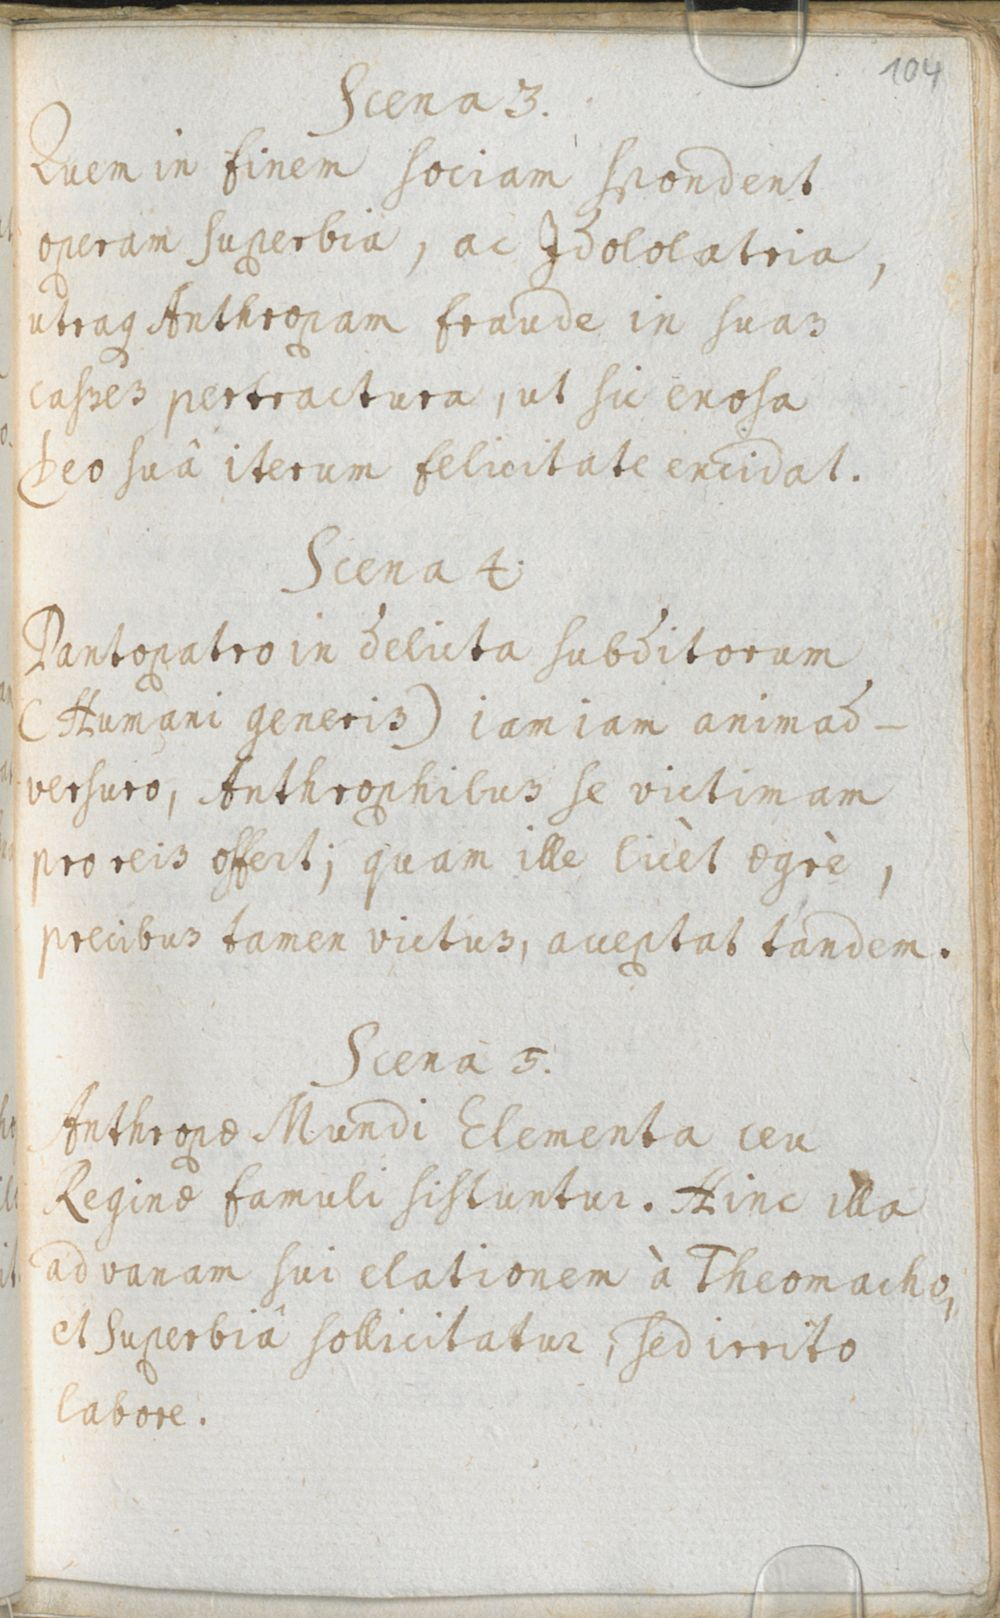 104
Scena 3.
Quem in finem sociam spondent
operam superbia, ac Idololatria,
utraq Anthropam fraude in suas
casses pertractura, ut sic exosa
Deo suâ iterum felicitate excidat.
Scena 4.
Pantopatro in delicta subditorum
(Humani generis) iamiam animad-
versuro, Anthrophilus se victimam
pro reis offert; quam ille licèt ægrè,
precibus tamen victus, acceptat tandem.
Scena 5.
Anthropæ Mundi Elementa ceu
Reginæ famuli sistuntur. Hinc illa
ad vanam sui elationem à Theomacho,
et Superbiâ sollicitatur, sed irrito
labore.